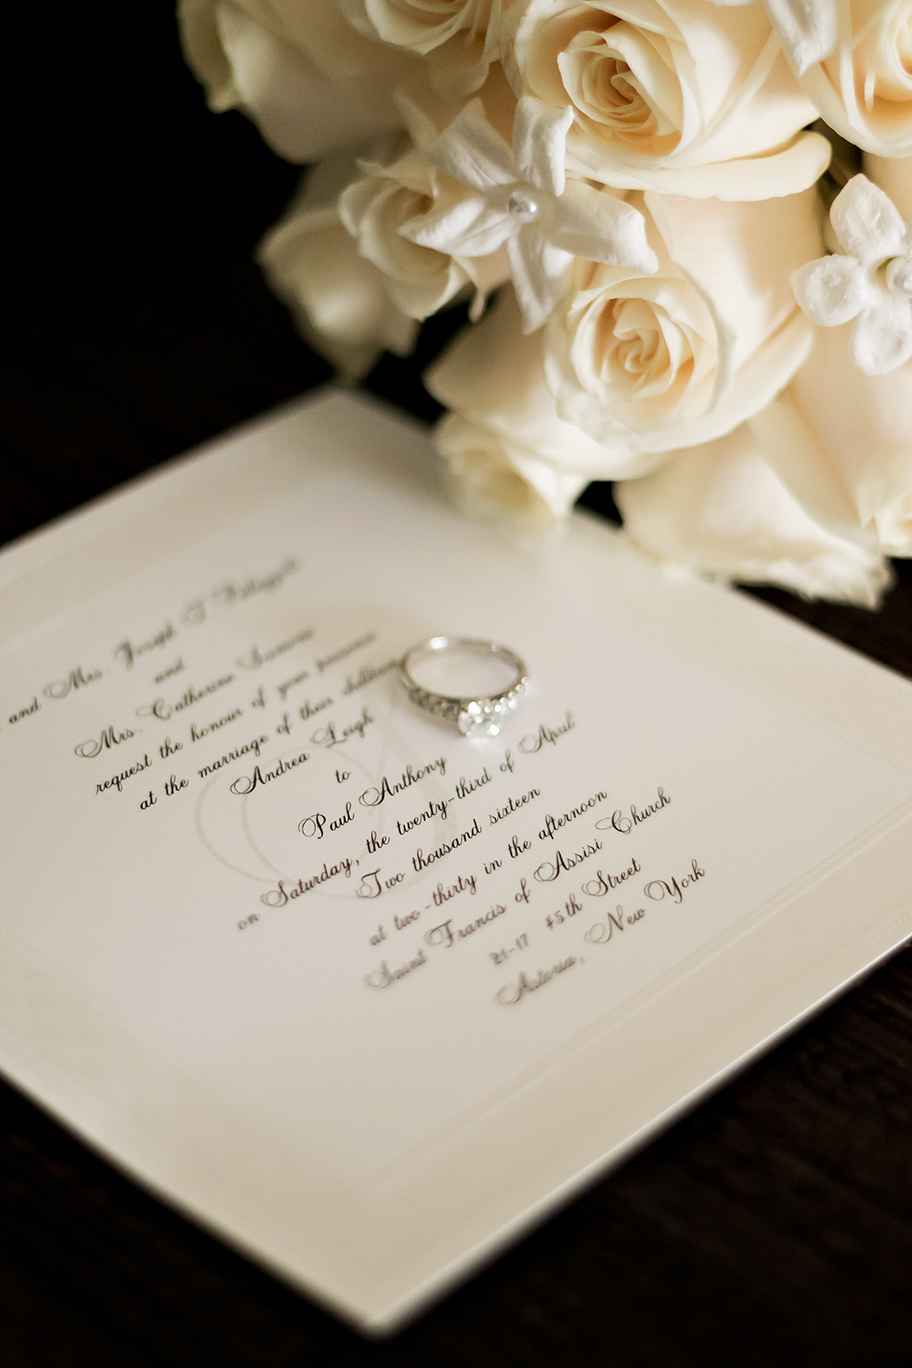 and Mrs. Joseph T
and
Mrs. Catherine
request the honour of your presence
at the marriage of their children
Andrea Leigh
to
Paul Anthony
on Saturday, the twenty-third of April
Two thousand sixteen
at two-thirty in the afternoon
Saint Francis of Assisi Church
21-17 45th Street
Astoria, New York